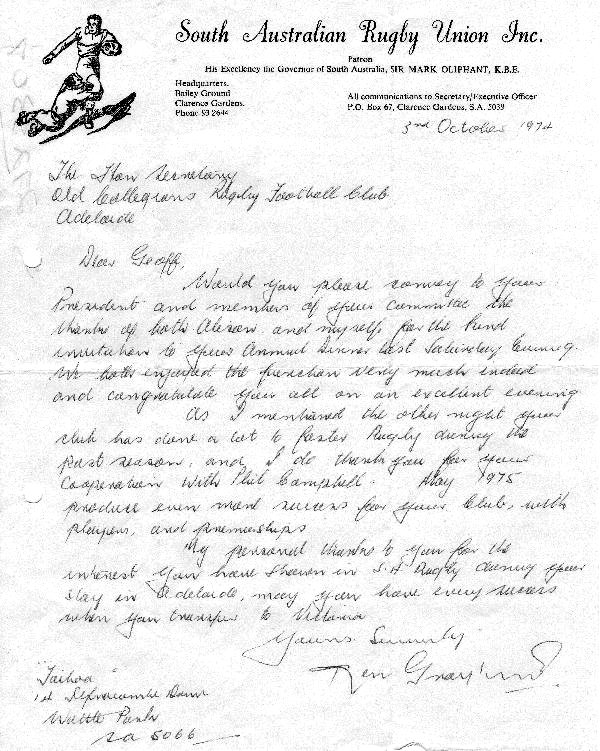 South Australian Rugby Union Inc.
Patron
His Excellency the Governor of South Australia, SIR MARK OLIPHANT, K.B.E.
Headquarters.
Bailey Ground
Clarence Gardens.
Phone 93 2644
All communications to Secretary/Executive Officer
P.O. Box 67, Clarence Gardens, S.A. 5039
3rd October 1974
The Hon Secretary
Old Collegians Rugby Football Club
Adelaide
Dear Geoff,
Would you please convey to your
President and members of your committee the
thanks of both Alison and myself for the kind
invitation to your Annual Dinner last Saturday Evening.
We both enjoyed the function very much indeed
and congratulate you all on an excellent evening
As I mentioned the other night your
club has done a lot to foster Rugby during the
past season, and I do thank you for your
cooperation with Phil Campbell. May 1975
produce even more success for your Club, with
players, and premierships
My personal thanks to you for the
interest you have shown in S.A Rugby during your
stay in Adelaide, may you have every success
when you transfer to Victoria
Yours Sincerely
"Taihoa"
Wattle Park
SA 5066